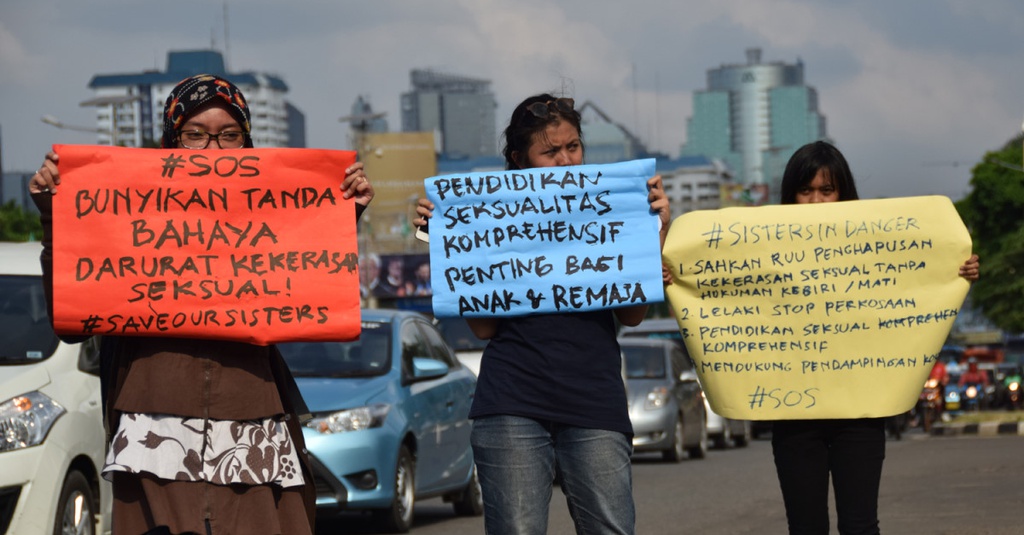 #SOS
BUNYIKAN TANDA
BAHAYA
DARURAT KEKERASAN
SEKSUAL!
#SAVEOURSISTERS
PENDIDIKAN
SEKSUALITAS
KOMPREHENSIF
PENTING BAGI
ANAK & REMAJA
#SISTERSINDANGER
1. SAHKAN RUU PENGHAPUSAN
KEKERASAN SEKSUAL TANPA
HUKUMAN KEBIRI / MATI
2. LELAKI STOP PERKOSAAN
3. PENDIDIKAN SEKSUAL KOMPREHEN
KOMPREHENSIF
MENDUKUNG PENDAMPINGAN
#SOS